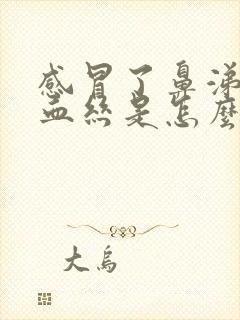 感冒了鼻涕
血丝是怎麼
大烏